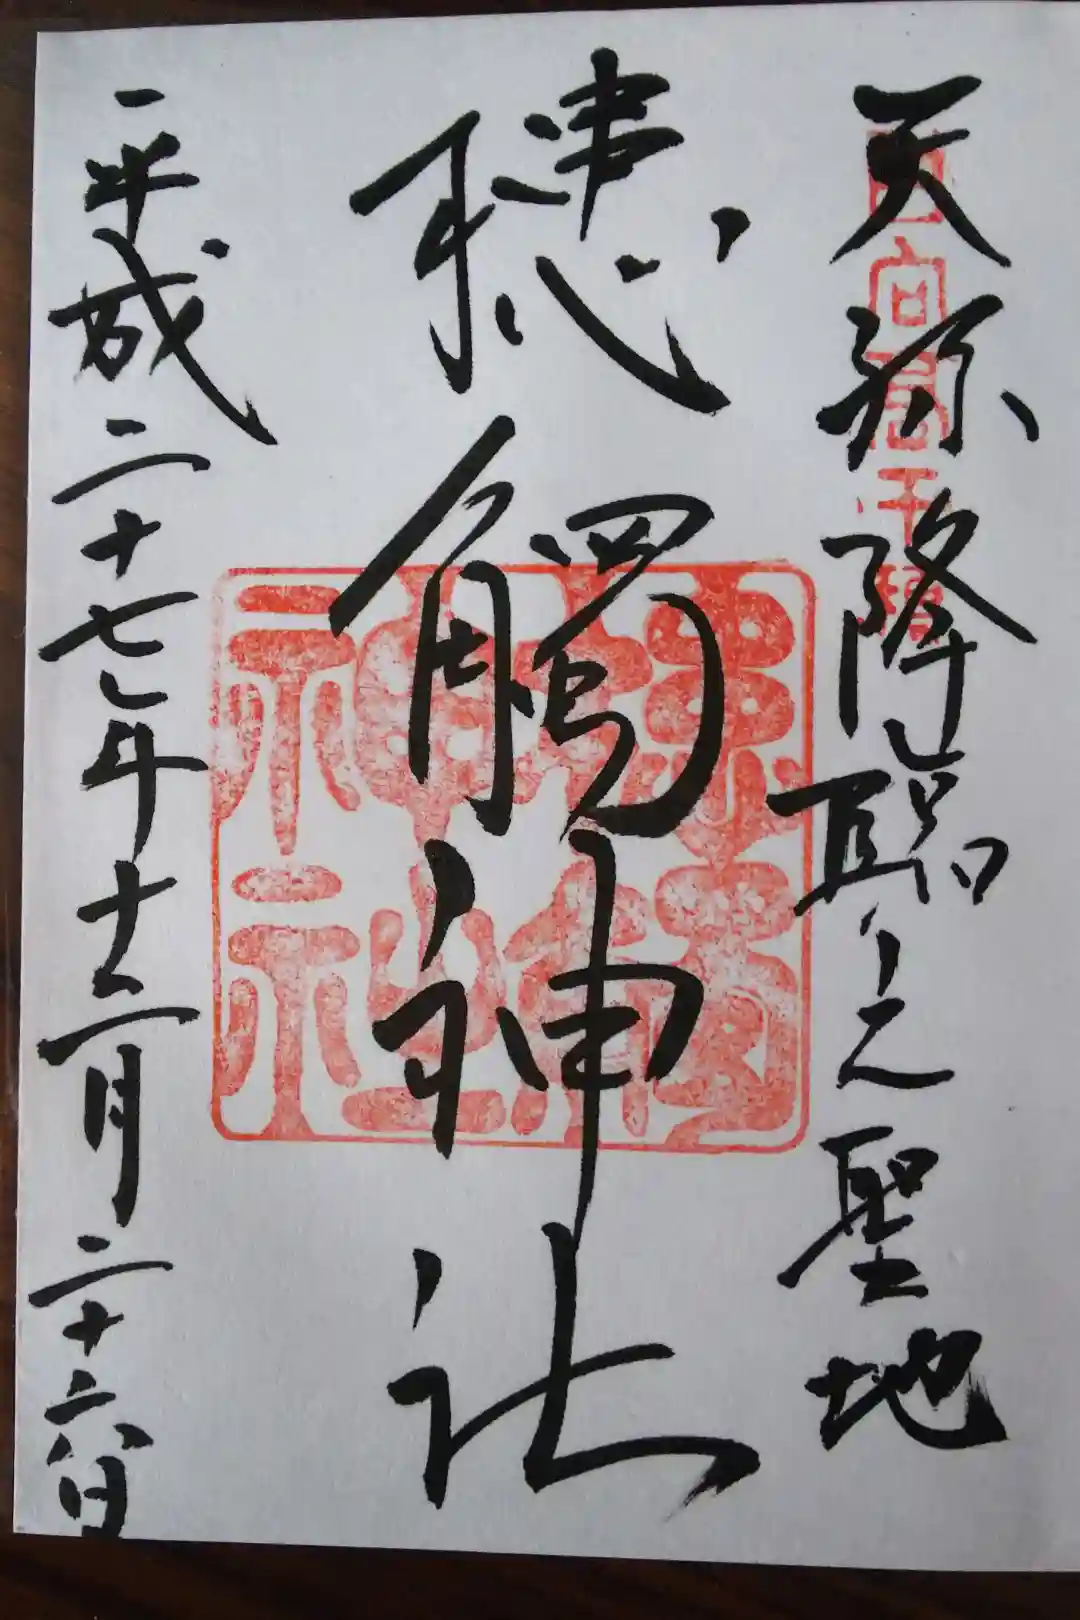 天孫降臨之聖地
日向高千穂
穂觸神社
槵觸神社
平成二十七年十二月二十六日